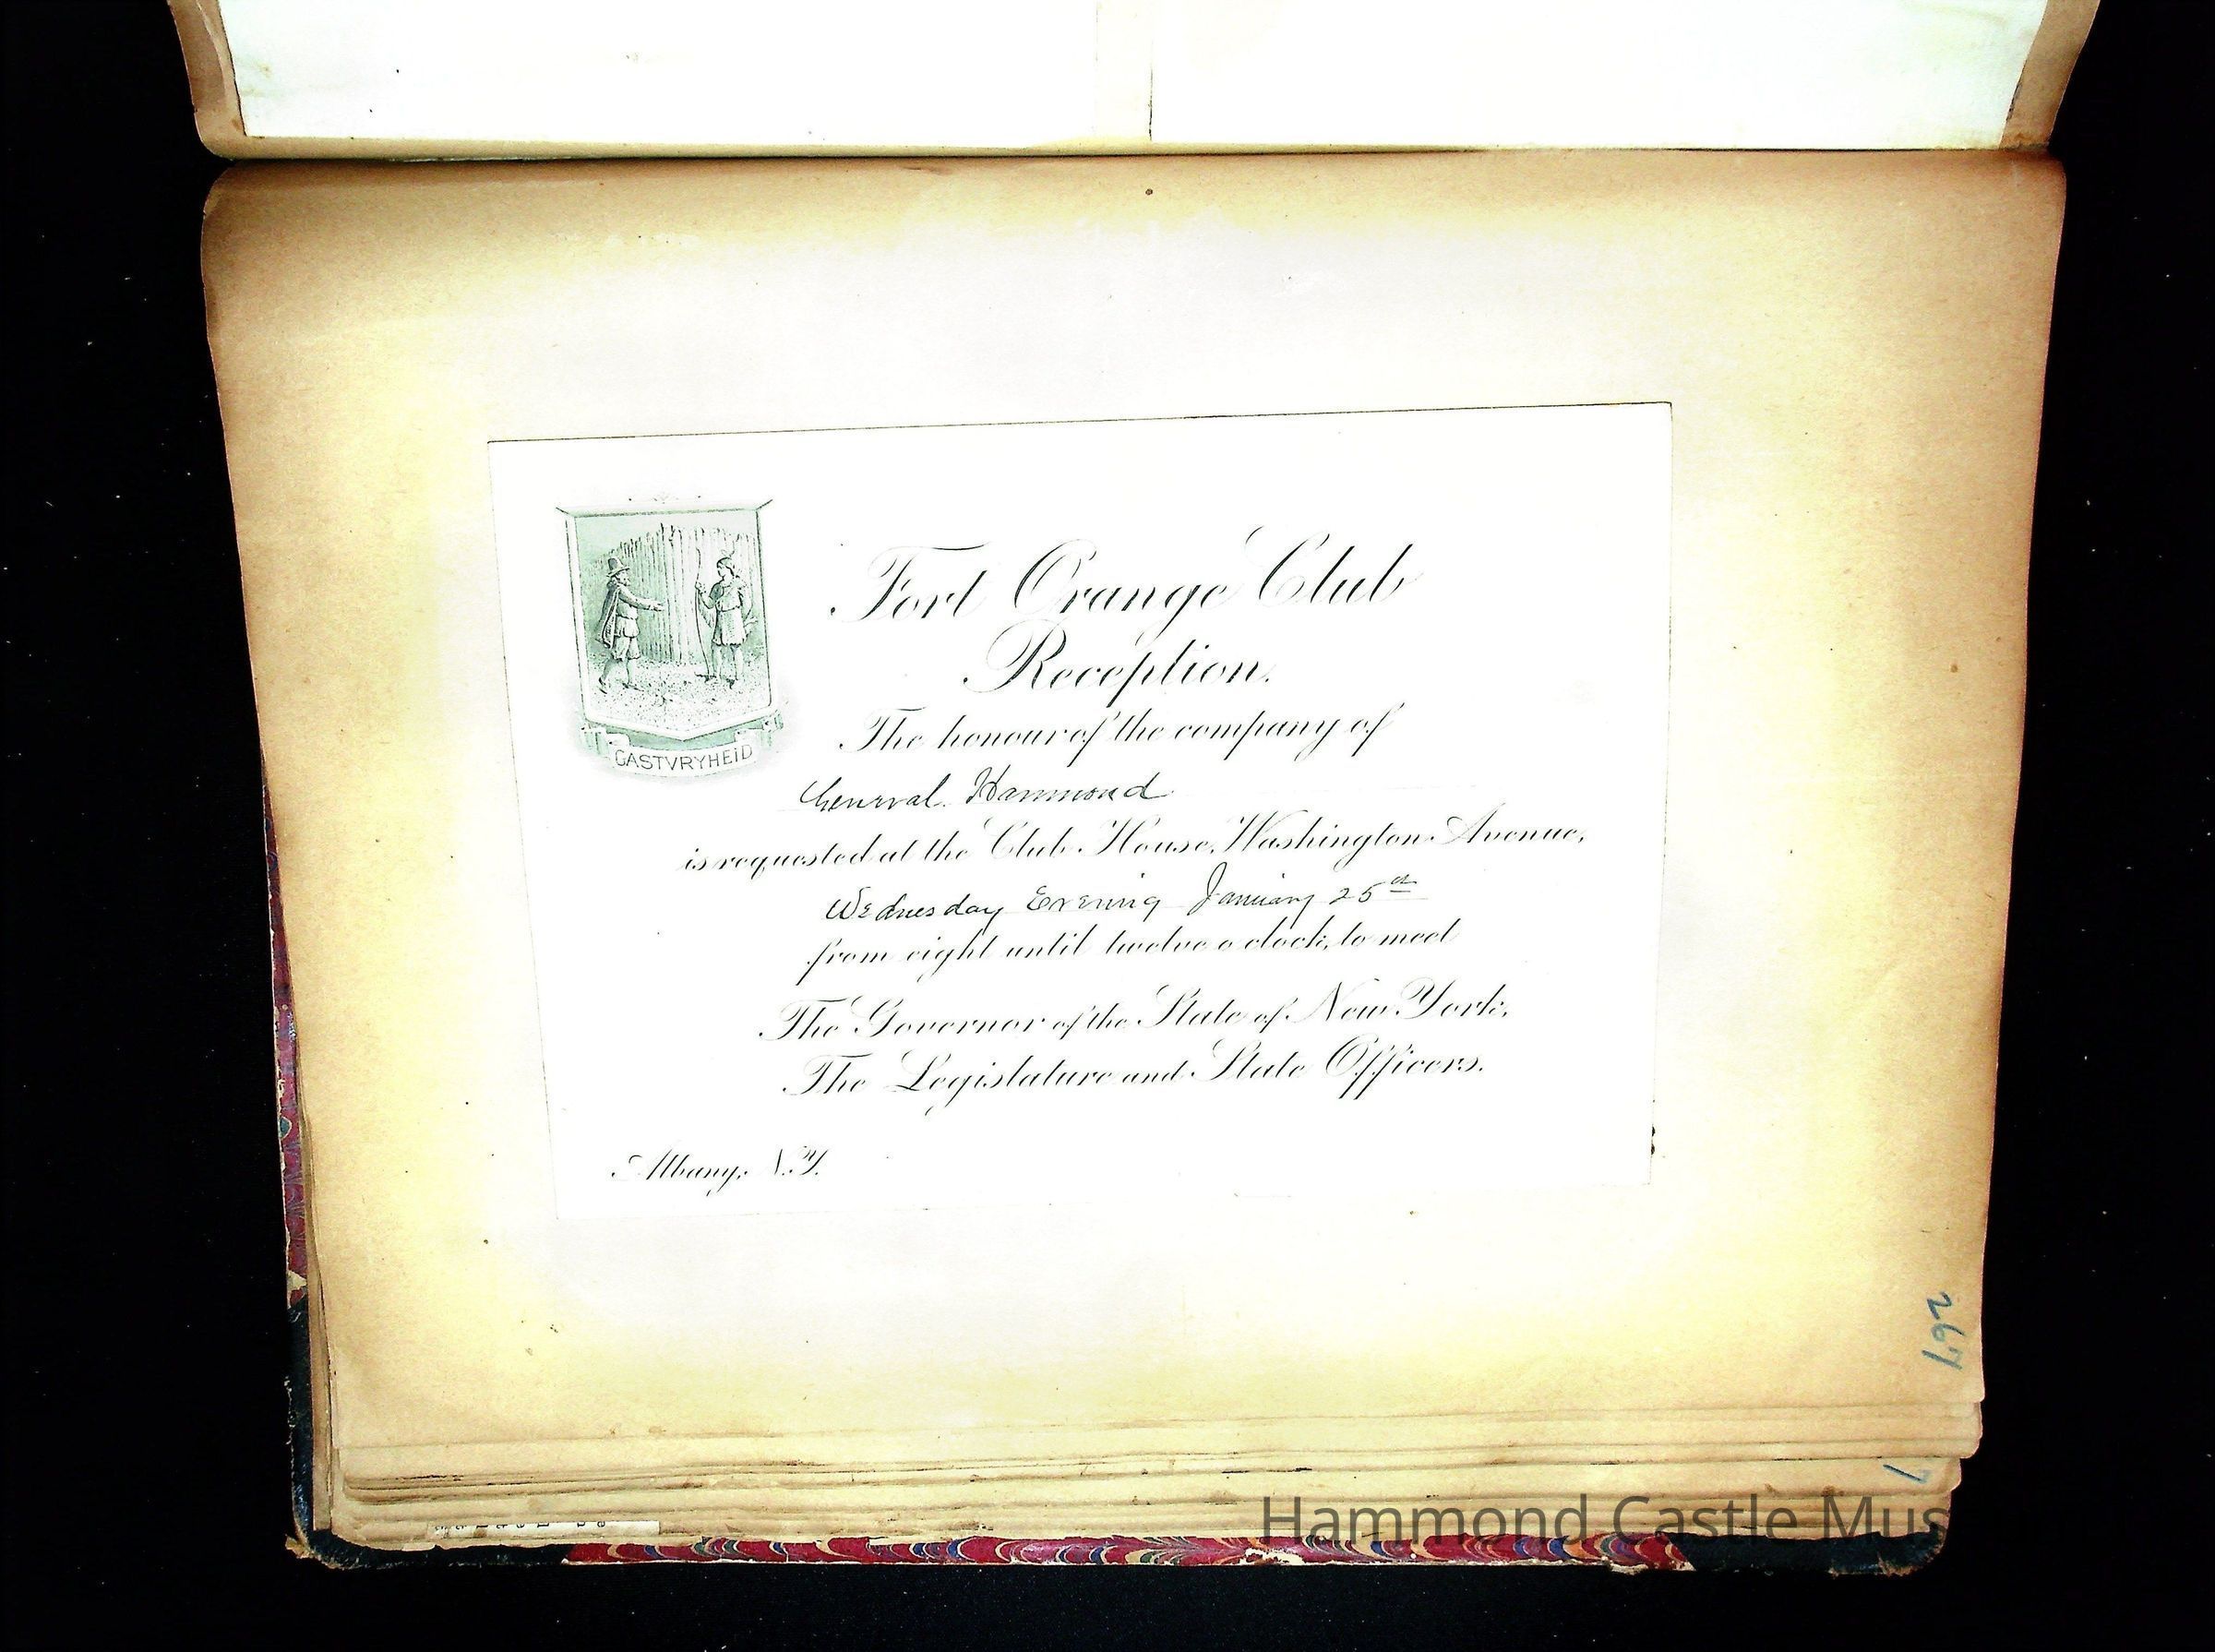 Fort Orange Club
Reception.
The honour of the company of
General Hammond
is requested at the Club House, Washington Avenue,
Wednesday Evening January 25th
from eight until twelve o'clock, to meet
The Governor of the State of New York,
The Legislature and State Officers.
Albany, N.Y.
GASTVRYHEID
267
Hammond Castle Mus